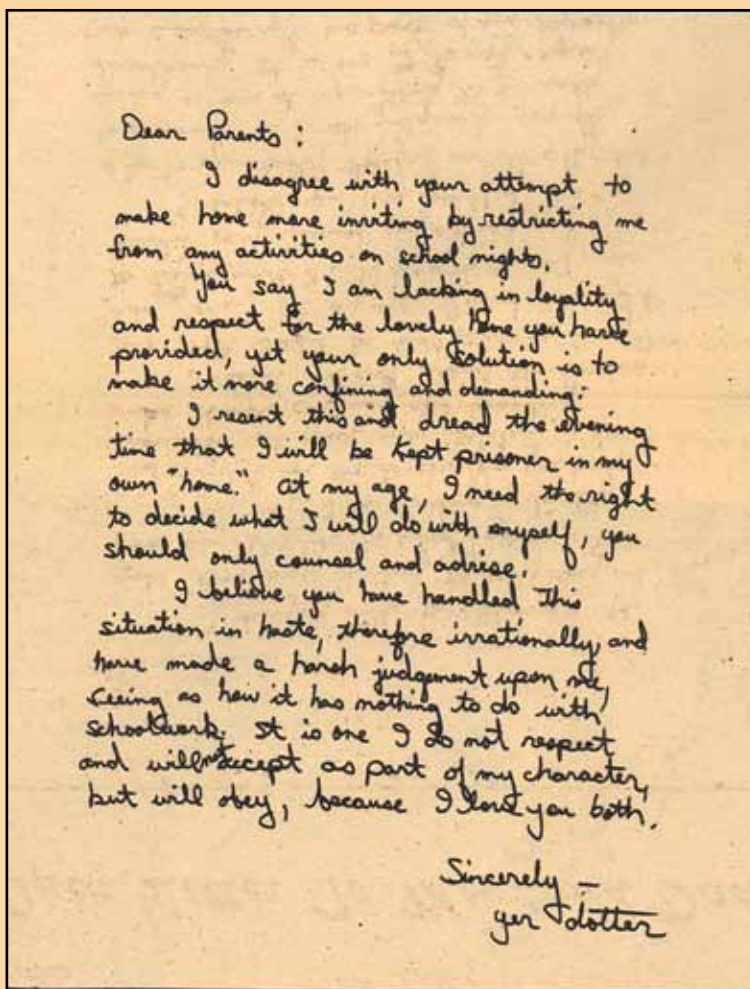 Dear Parents :
I disagree with your attempt to
make home more inviting by restricting me
from any activities on school nights.
You say I am lacking in loyality
and respect for the lovely home you have
provided, yet your only solution is to
make it more confining and demanding.
I resent this and dread the evening
time that I will be kept prisoner in my
own "home." At my age, I need the right
to decide what I will do with myself, you
should only counsel and advise.
I believe you have handled this
situation in haste, therefore irrationally, and
have made a harsh judgement upon me,
seeing as how it has nothing to do with
schoolwork. It is one I do not respect
and will not accept as part of my character,
but will obey, because I love you both.
Sincerely –
yer dotter